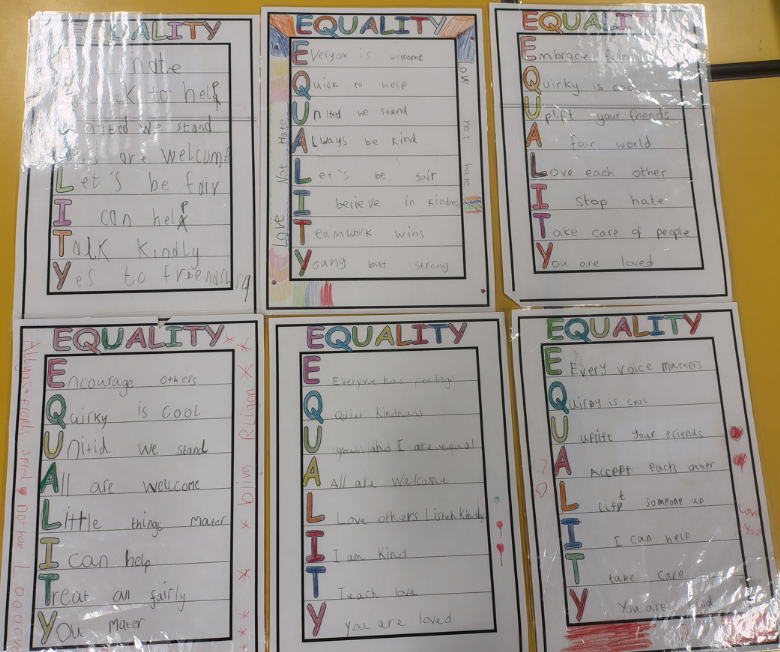 EQUALITY
hate
to help
United we stand
are welcome
Let's be fair
I can help
Talk kindly
Yes to friendship
EQUALITY
Everyone is welcome
Quick to help
United we stand
Always be kind
Let's be fair
I believe in kindness
Teamwork wins
Young but strong
Love Not Hate
EQUALITY
Embrace
Quirky is
Uplift your friends
A fair world
Love each other
I stop hate
Take care of people
You are loved
EQUALITY
Encourage others
Quirky is cool
Unitid we stand
All are wellcome
Little things mater
I can help
Treat all fairly
You mater
EQUALITY
Everyone has feelings
Quiet Kindness
you and I are equal
All are Welcome
Love others Listen kindly
I am kind
Teach love
You are loved
EQUALITY
Every voice matters
Quirky is cool
uplift your friends
Accept each other
Lift someone up
I can help
take care
You are
Love
You